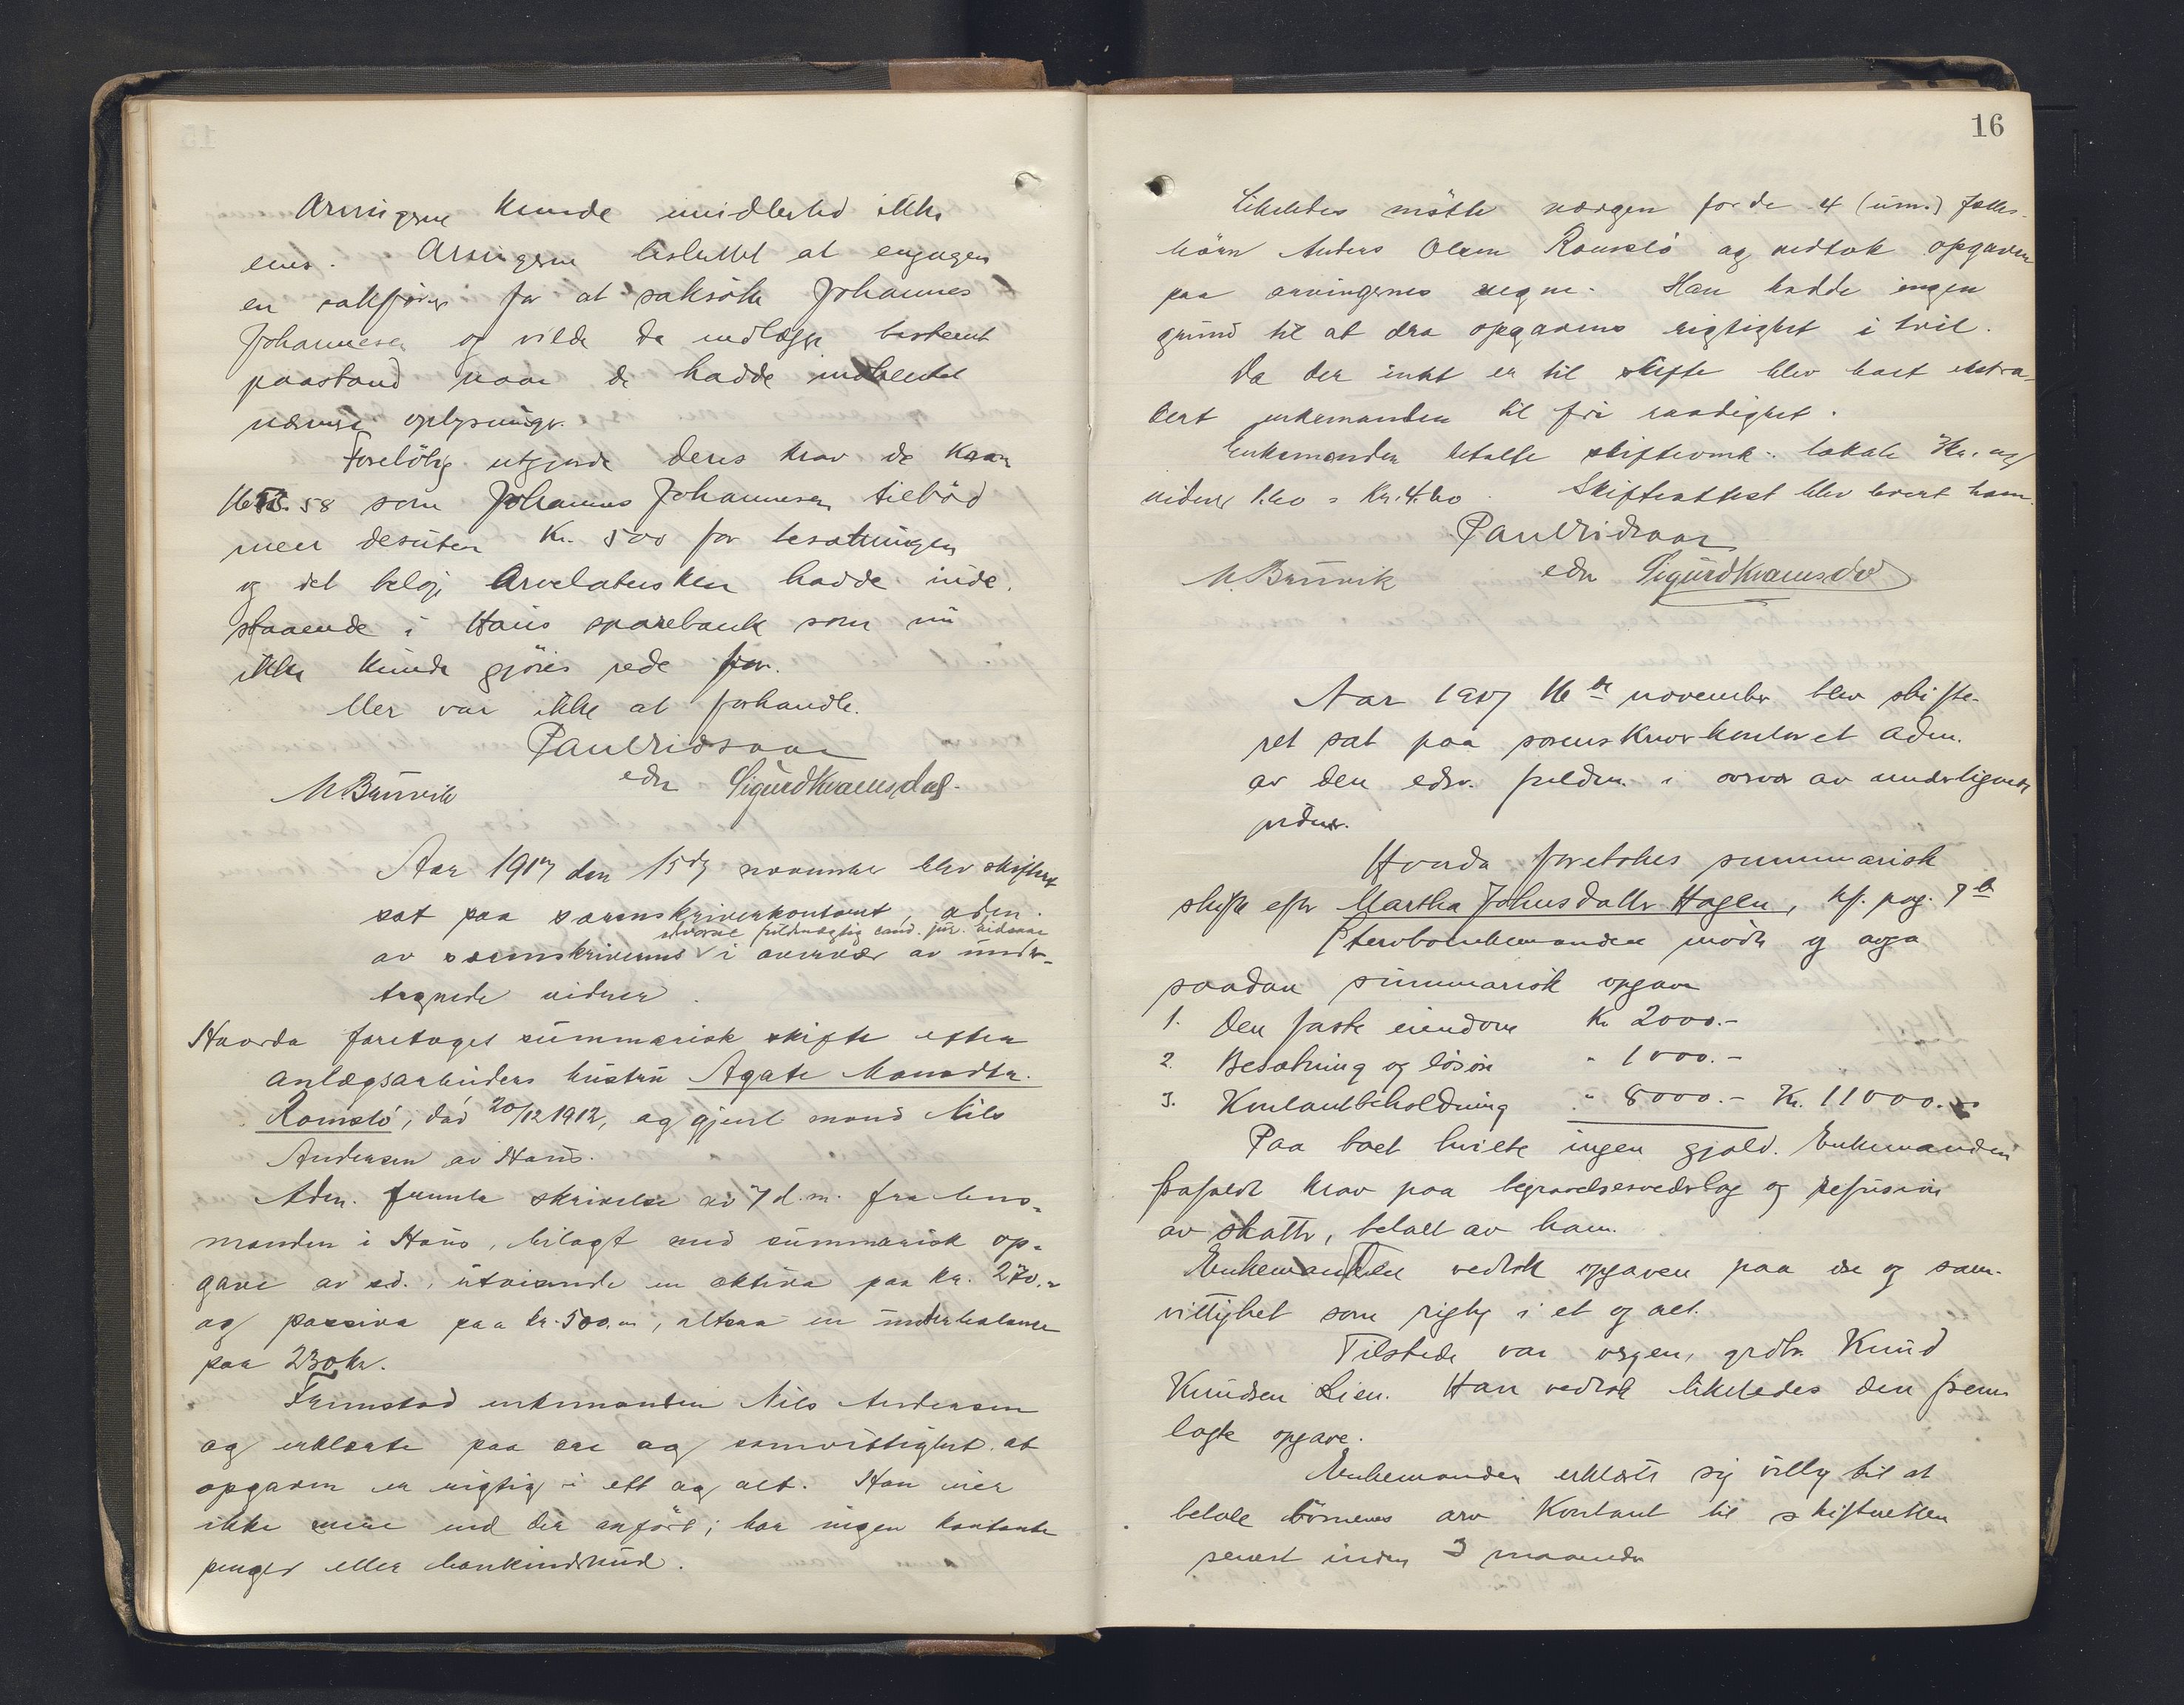 Arvingerne kunde imidlertid ikke
enes. Arvingerne besluttet at engagere
en sakfører for at saksøke Johannes
Johannesen og vilde da nedlægge bestemt
paastand naar de hadde indhentet
nærmere oplysninger.
Foreløbig utgjorde deres krav de Kroner
1653.58 som Johannes Johannesen tilbød
men desuten Kr. 500 for besætningen
og det beløp Arvelatersken hadde inde-
staaende i Haus sparebank som nu
ikke kunde gjøres rede for.
Mer var ikke at forhandle.
Paul Vidsaar
edsv
M. Brunvik Sigurd Kvamsdal.
Aar 1917 den 15de november blev skifteret
sat paa sorenskriverkontoret, adm.
edsvorne fuldmægtig cand. jur. Vidsaar
av sorenskriverens i overvær av under-
tegnede vidner.
Hvorda foretoges summarisk skifte efter
anlægsarbeiders hustru Agate Monsdtr.
Romslo, død 20/12 1912, og gjenl. mand Nils
Andersen av Haus.
Adm. fremla skrivelse av 7 d.m. fra lens-
manden i Haus, bilagt med summarisk op-
gave av sd., utvisende en aktiva paa kr. 270.-
og passiva paa kr. 500.00, altsaa en underbalance
paa 230 kr.
Fremstod enkemanden Nils Andersen
og erklærte paa ære og samvittighet at
opgaven er rigtig i ett og alt. Han eier
ikke mere end der anført; har ingen kontante
penger eller bankindskud.
16
Likeledes møtte værgen for de 4 (um.) fælles-
børn Anders Olsen Romslo og vedtok opgaven
paa arvingernes vegne. Han hadde ingen
grund til at dra opgavens rigtighet i tvil.
Da der intet er til skifte blev boet extra-
dert enkemanden til fri raadighet.
Enkemanden betalte skifteomk. lokale 3 kr. og
vidner 1.60 = kr. 4.60. Skifteattest blev levert ham.
Paul Vidsaar
edsv
M. Brunvik Sigurd Kvamsdal
Aar 1917 16de november blev skifte-
ret sat paa sorenskriverkontoret adm.
av den edsv. fuldm. i overvær av undertegnede
vidner.
Hvorda foretokes summarisk
skifte efter Martha Johnsdatter Hagen, kf. pag. 9b
Stervboenkemanden møtte og avga
saadan summarisk opgave
1. Den faste eiendom Kr 2000.-
2. Besætning og løsøre " 1000.-
3. Kontantbeholdning " 8000.- Kr. 11000.00
Paa boet hvilte ingen gjæld. Enkemanden
frafaldt krav paa begravelsesvederlag og refusion
av skatter, betalt av ham.
Enkemanden vedtok opgaven paa ære og sam-
vittighet som rigtig i et og alt.
Tilstede var vergen, grdbr. Knud
Knudsen Lien. Han vedtok likeledes den frem
lagte opgave.
Enkemanden erklærte sig villig til at
betale børnenes arv Kontant til skifteretten
senest inden 3 maaneder